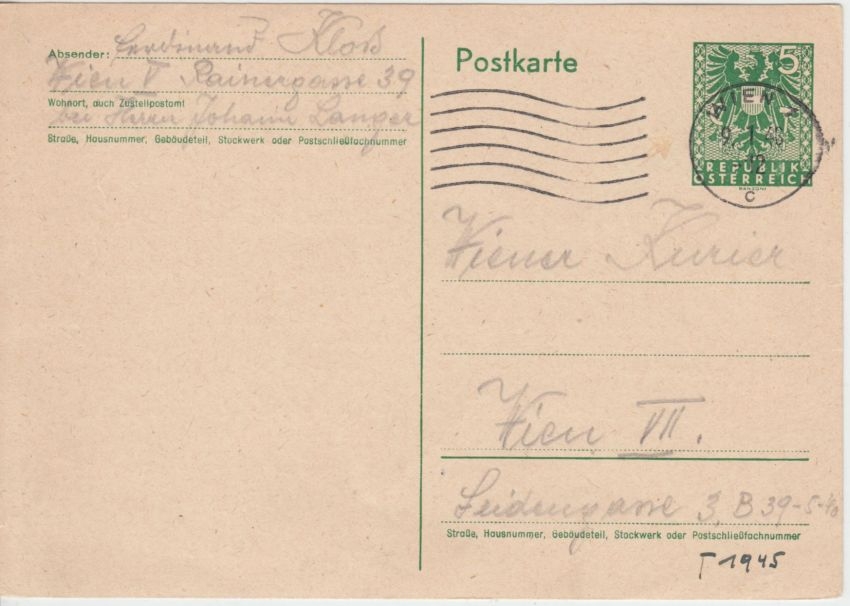 Absender: Ferdinand Kloß
Wien V Rainergasse 39
Wohnort, auch Zustellpostamt
bei Herrn Johann Langer
Straße, Hausnummer, Gebäudeteil, Stockwerk oder Postschließfachnummer
Postkarte
5
WIEN 7
9. 1. 46
c
REPUBLIK
ÖSTERREICH
RANZONI
Wiener Kurier
Wien VII.
Seidengasse 3, B 39-5-
Straße, Hausnummer, Gebäudeteil, Stockwerk oder Postschließfachnummer
T 1945